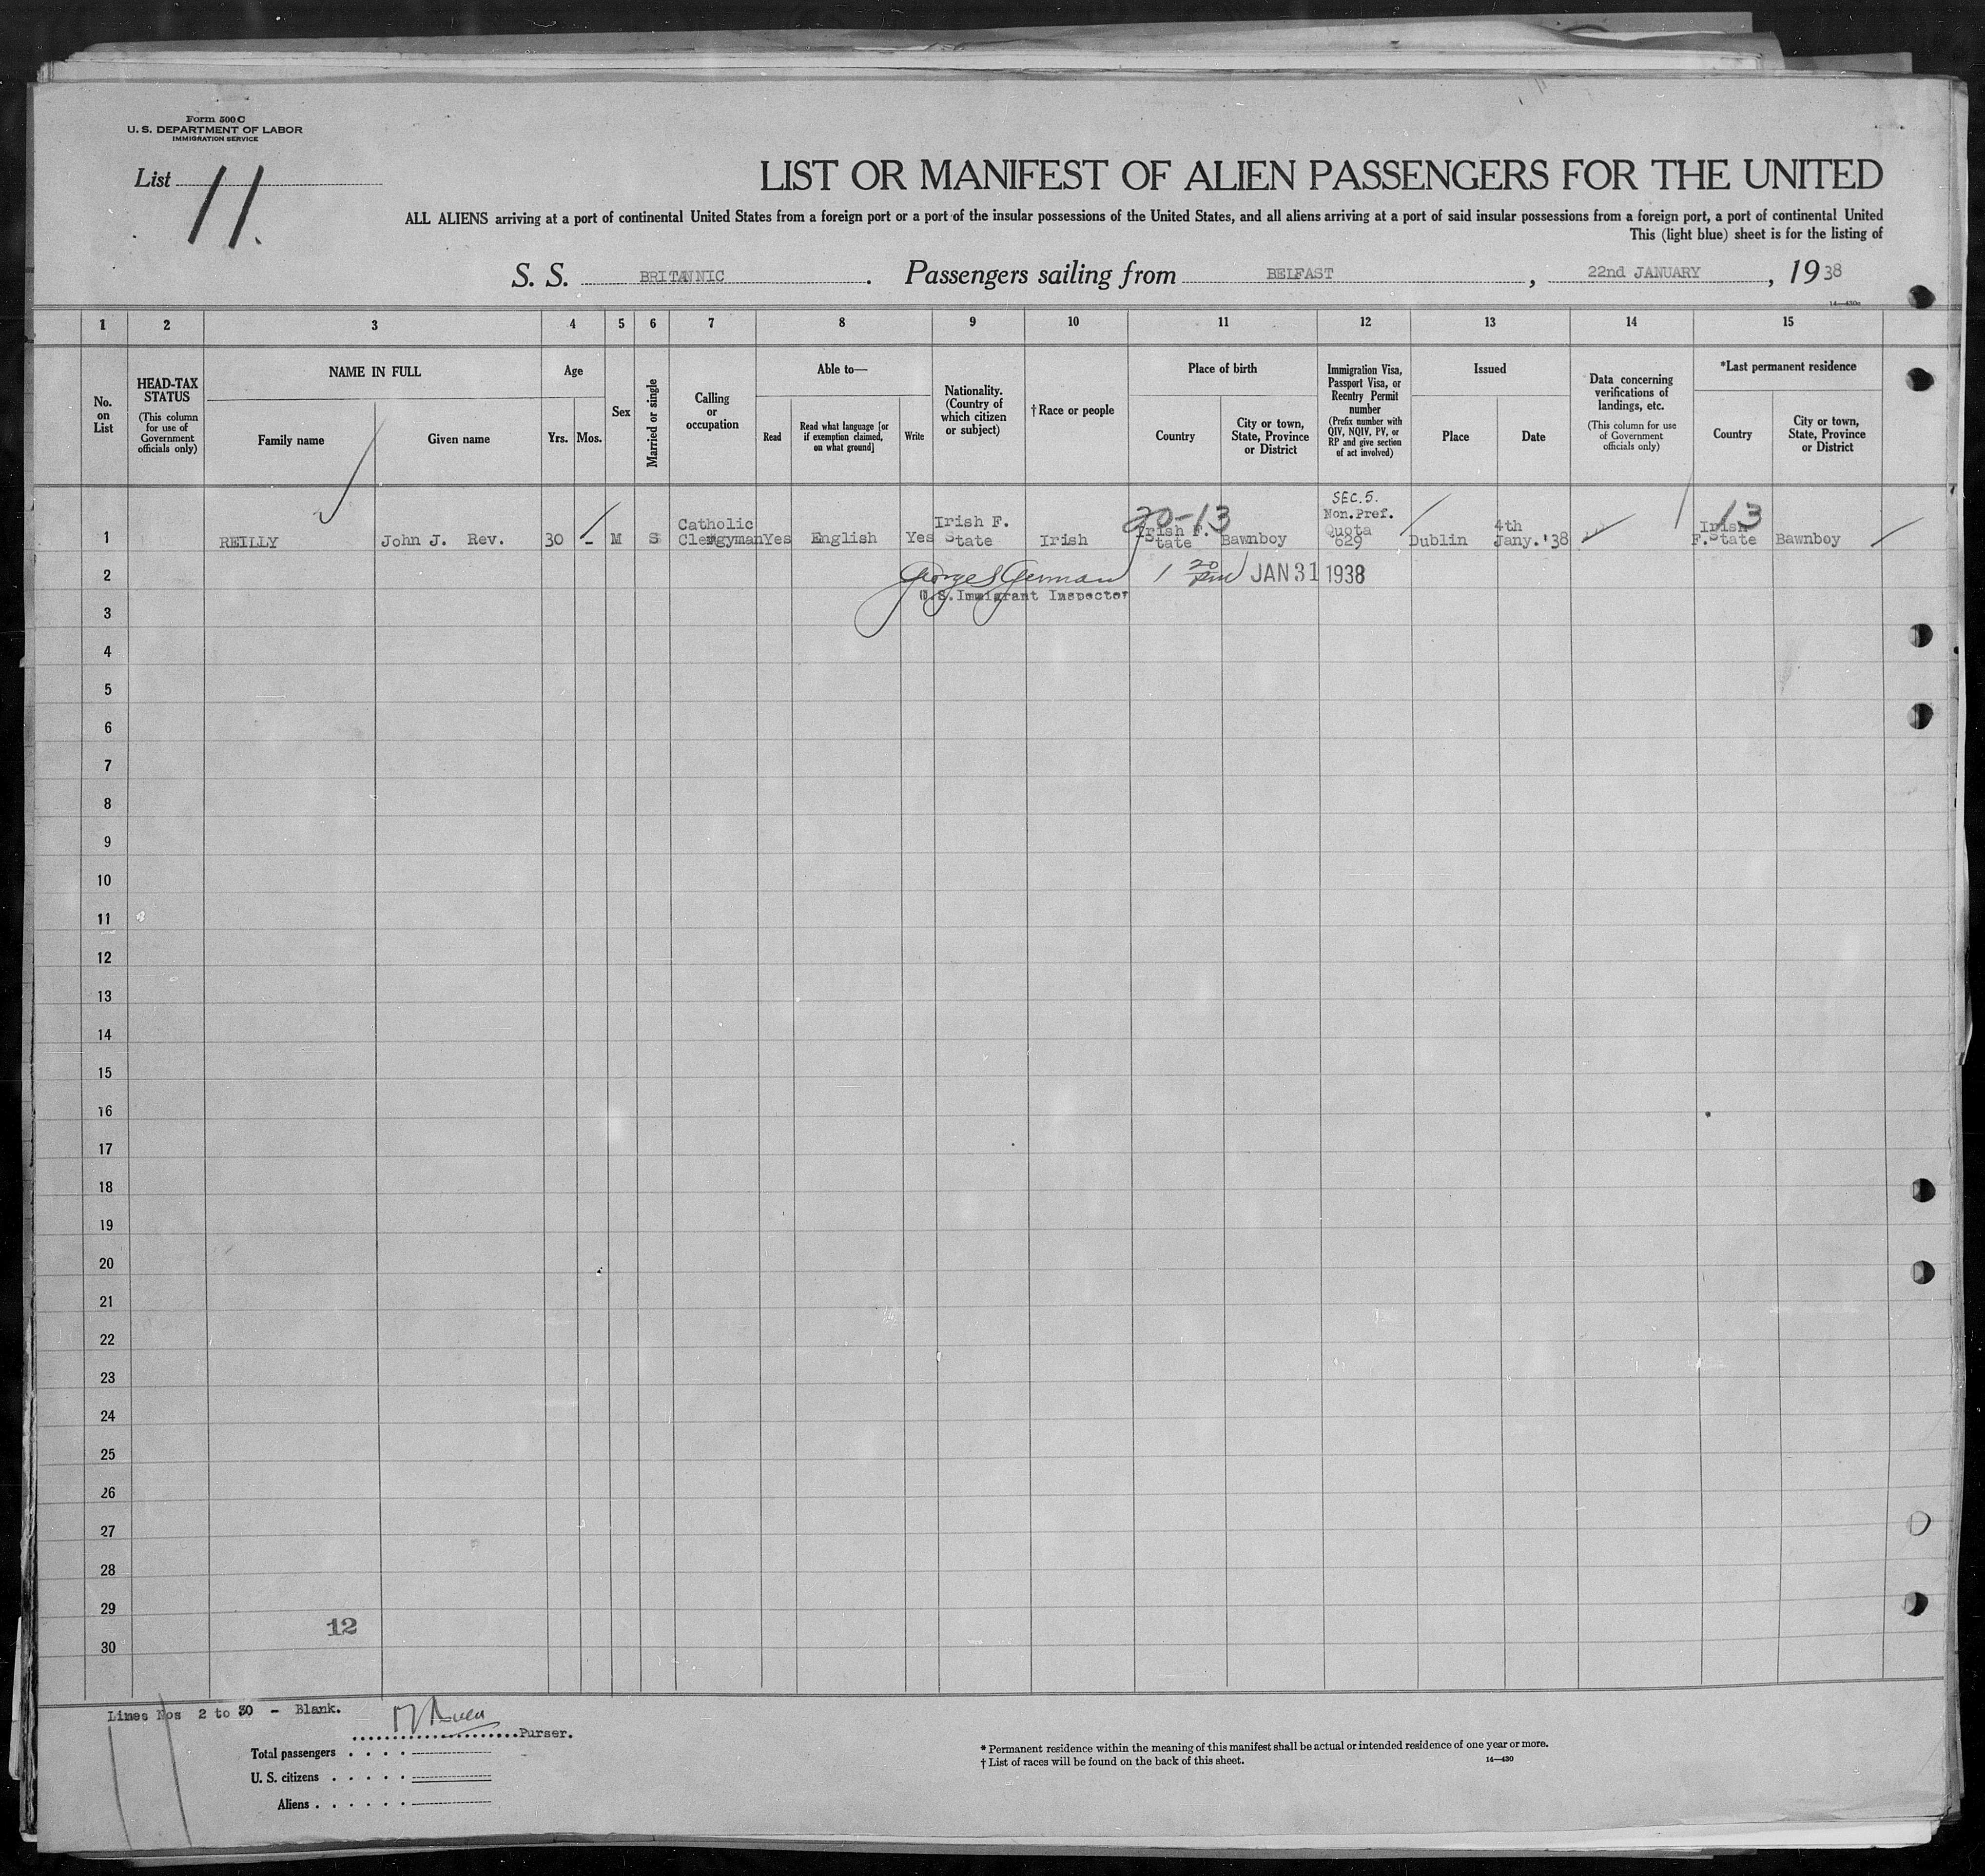 Form 500 C
U. S. DEPARTMENT OF LABOR
IMMIGRATION SERVICE
List 11.
LIST OR MANIFEST OF ALIEN PASSENGERS FOR THE UNITED
ALL ALIENS arriving at a port of continental United States from a foreign port or a port of the insular possessions of the United States, and all aliens arriving at a port of said insular possessions from a foreign port, a port of continental United
This (light blue) sheet is for the listing of
S. S. BRITANNIC. Passengers sailing from BELFAST, 22nd JANUARY, 1938
14—430a
1 2 3 4 5 6 7 8 9 10 11 12 13 14 15
No. on List
HEAD-TAX STATUS
(This column for use of Government officials only)
NAME IN FULL
Family name
Given name
Age
Yrs.
Mos.
Sex
Married or single
Calling or occupation
Able to—
Read
Read what language [or if exemption claimed, on what ground]
Write
Nationality. (Country of which citizen or subject)
† Race or people
Place of birth
Country
City or town, State, Province or District
Immigration Visa, Passport Visa, or Reentry Permit number
(Prefix number with QIV, NQIV, PV, or RP and give section of act involved)
Issued
Place
Date
Data concerning verifications of landings, etc.
(This column for use of Government officials only)
*Last permanent residence
Country
City or town, State, Province or District
1 REILLY John J. Rev. 30 - M S Catholic Clergyman Yes English Yes Irish F. State Irish 20-13 Irish F. State Bawnboy SEC. 5. Non.Pref. Quota 629 Dublin 4th Jany.'38 13 Irish F. State Bawnboy
2 George S German 1 20 pm JAN 31 1938
U.S. Immigrant Inspector
3
4
5
6
7
8
9
10
11
12
13
14
15
16
17
18
19
20
21
22
23
24
25
26
27
28
29
12
30
Lines Nos 2 to 30 - Blank.
Purser.
Total passengers
U. S. citizens
Aliens
* Permanent residence within the meaning of this manifest shall be actual or intended residence of one year or more.
† List of races will be found on the back of this sheet.
14—430